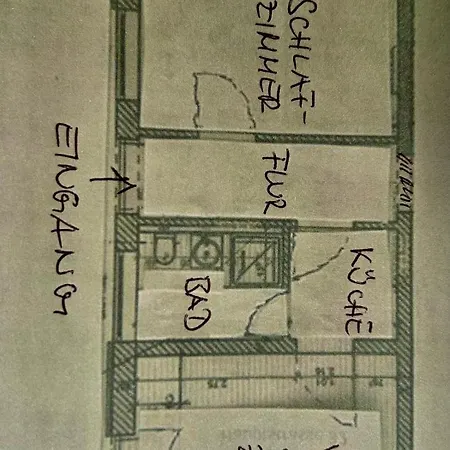 SCHLAF-
ZIMMER
FLUR
EINGANG
KÜCHE
BAD